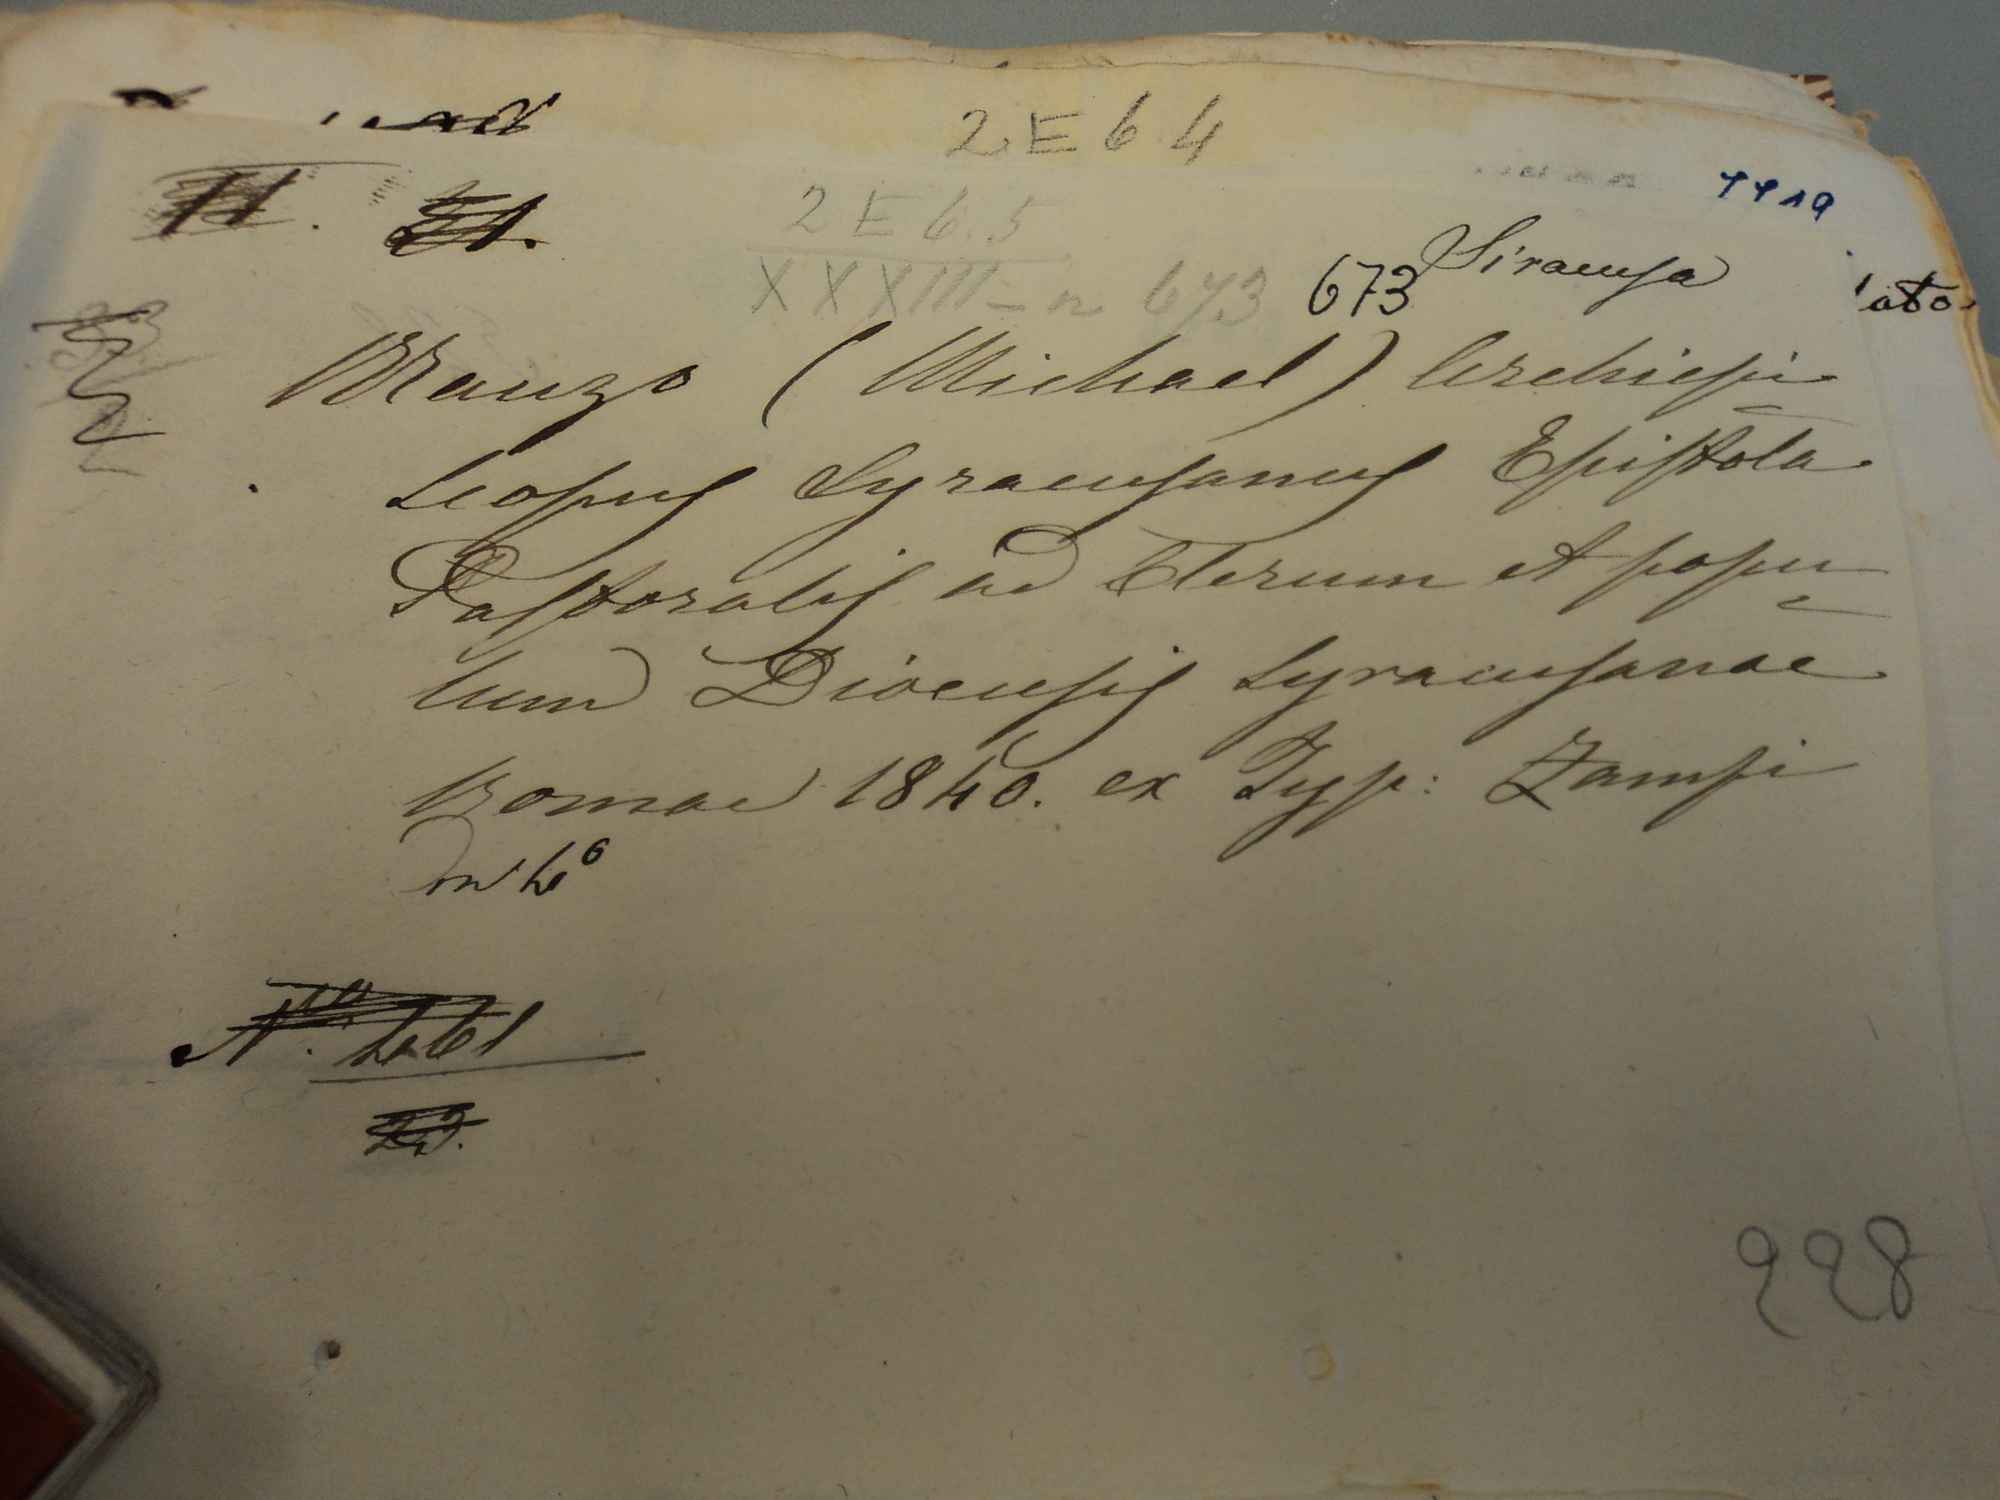 2 E 6 4
2 E 6. 5
XXXIII - n 673
673 Siracusa
Manzo (Michael) Archiepi-
scopus Syracusanus Epistola
Pastoralis ad Clerum et popu-
lum Diocesis Syracusanae
Romae 1840. ex Typ: Zampi
in 4°
N.
228